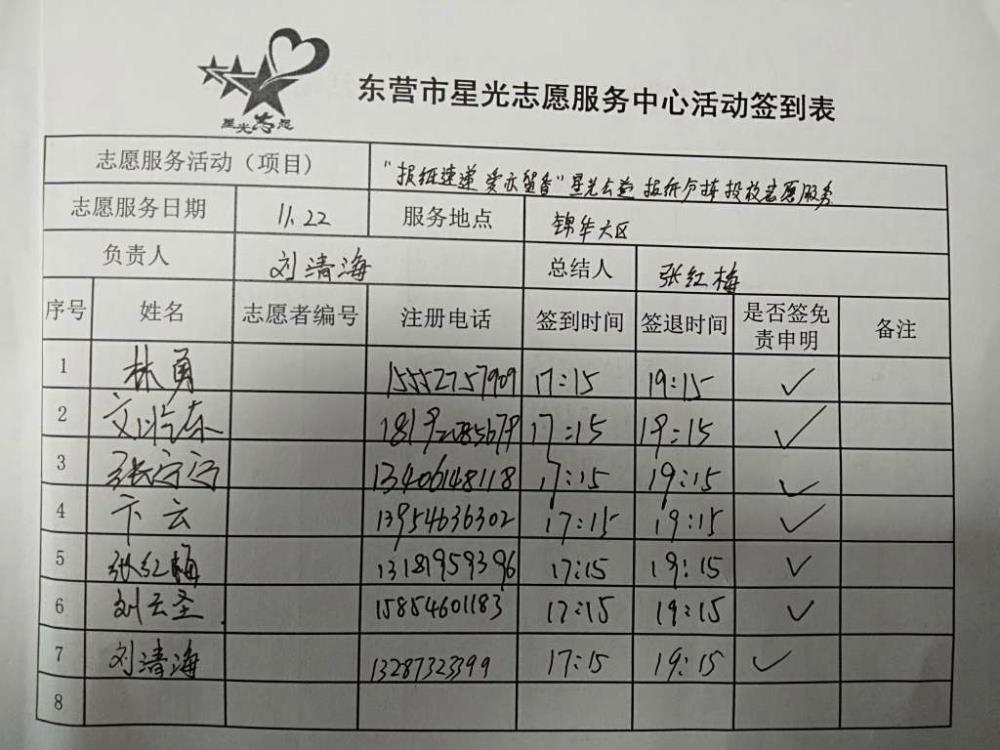 星光志愿
东营市星光志愿服务中心活动签到表
志愿服务活动（项目） "报纸速递 爱亦留香"星光公益 报纸 投放志愿服务
志愿服务日期 11.22 服务地点 锦华大区
负责人 刘清海 总结人 张红梅
序号 姓名 志愿者编号 注册电话 签到时间 签退时间 是否签免责申明 备注
1 林勇 15552757909 17:15 19:15 ✓
2 18192085679 17:15 19:15 ✓
3 张宁宁 13406148118 17:15 19:15 ✓
4 卞云 13954636302 17:15 19:15 ✓
5 张红梅 13181959396 17:15 19:15 ✓
6 刘云圣 15854601183 17:15 19:15 ✓
7 刘清海 13287323399 17:15 19:15 ✓
8